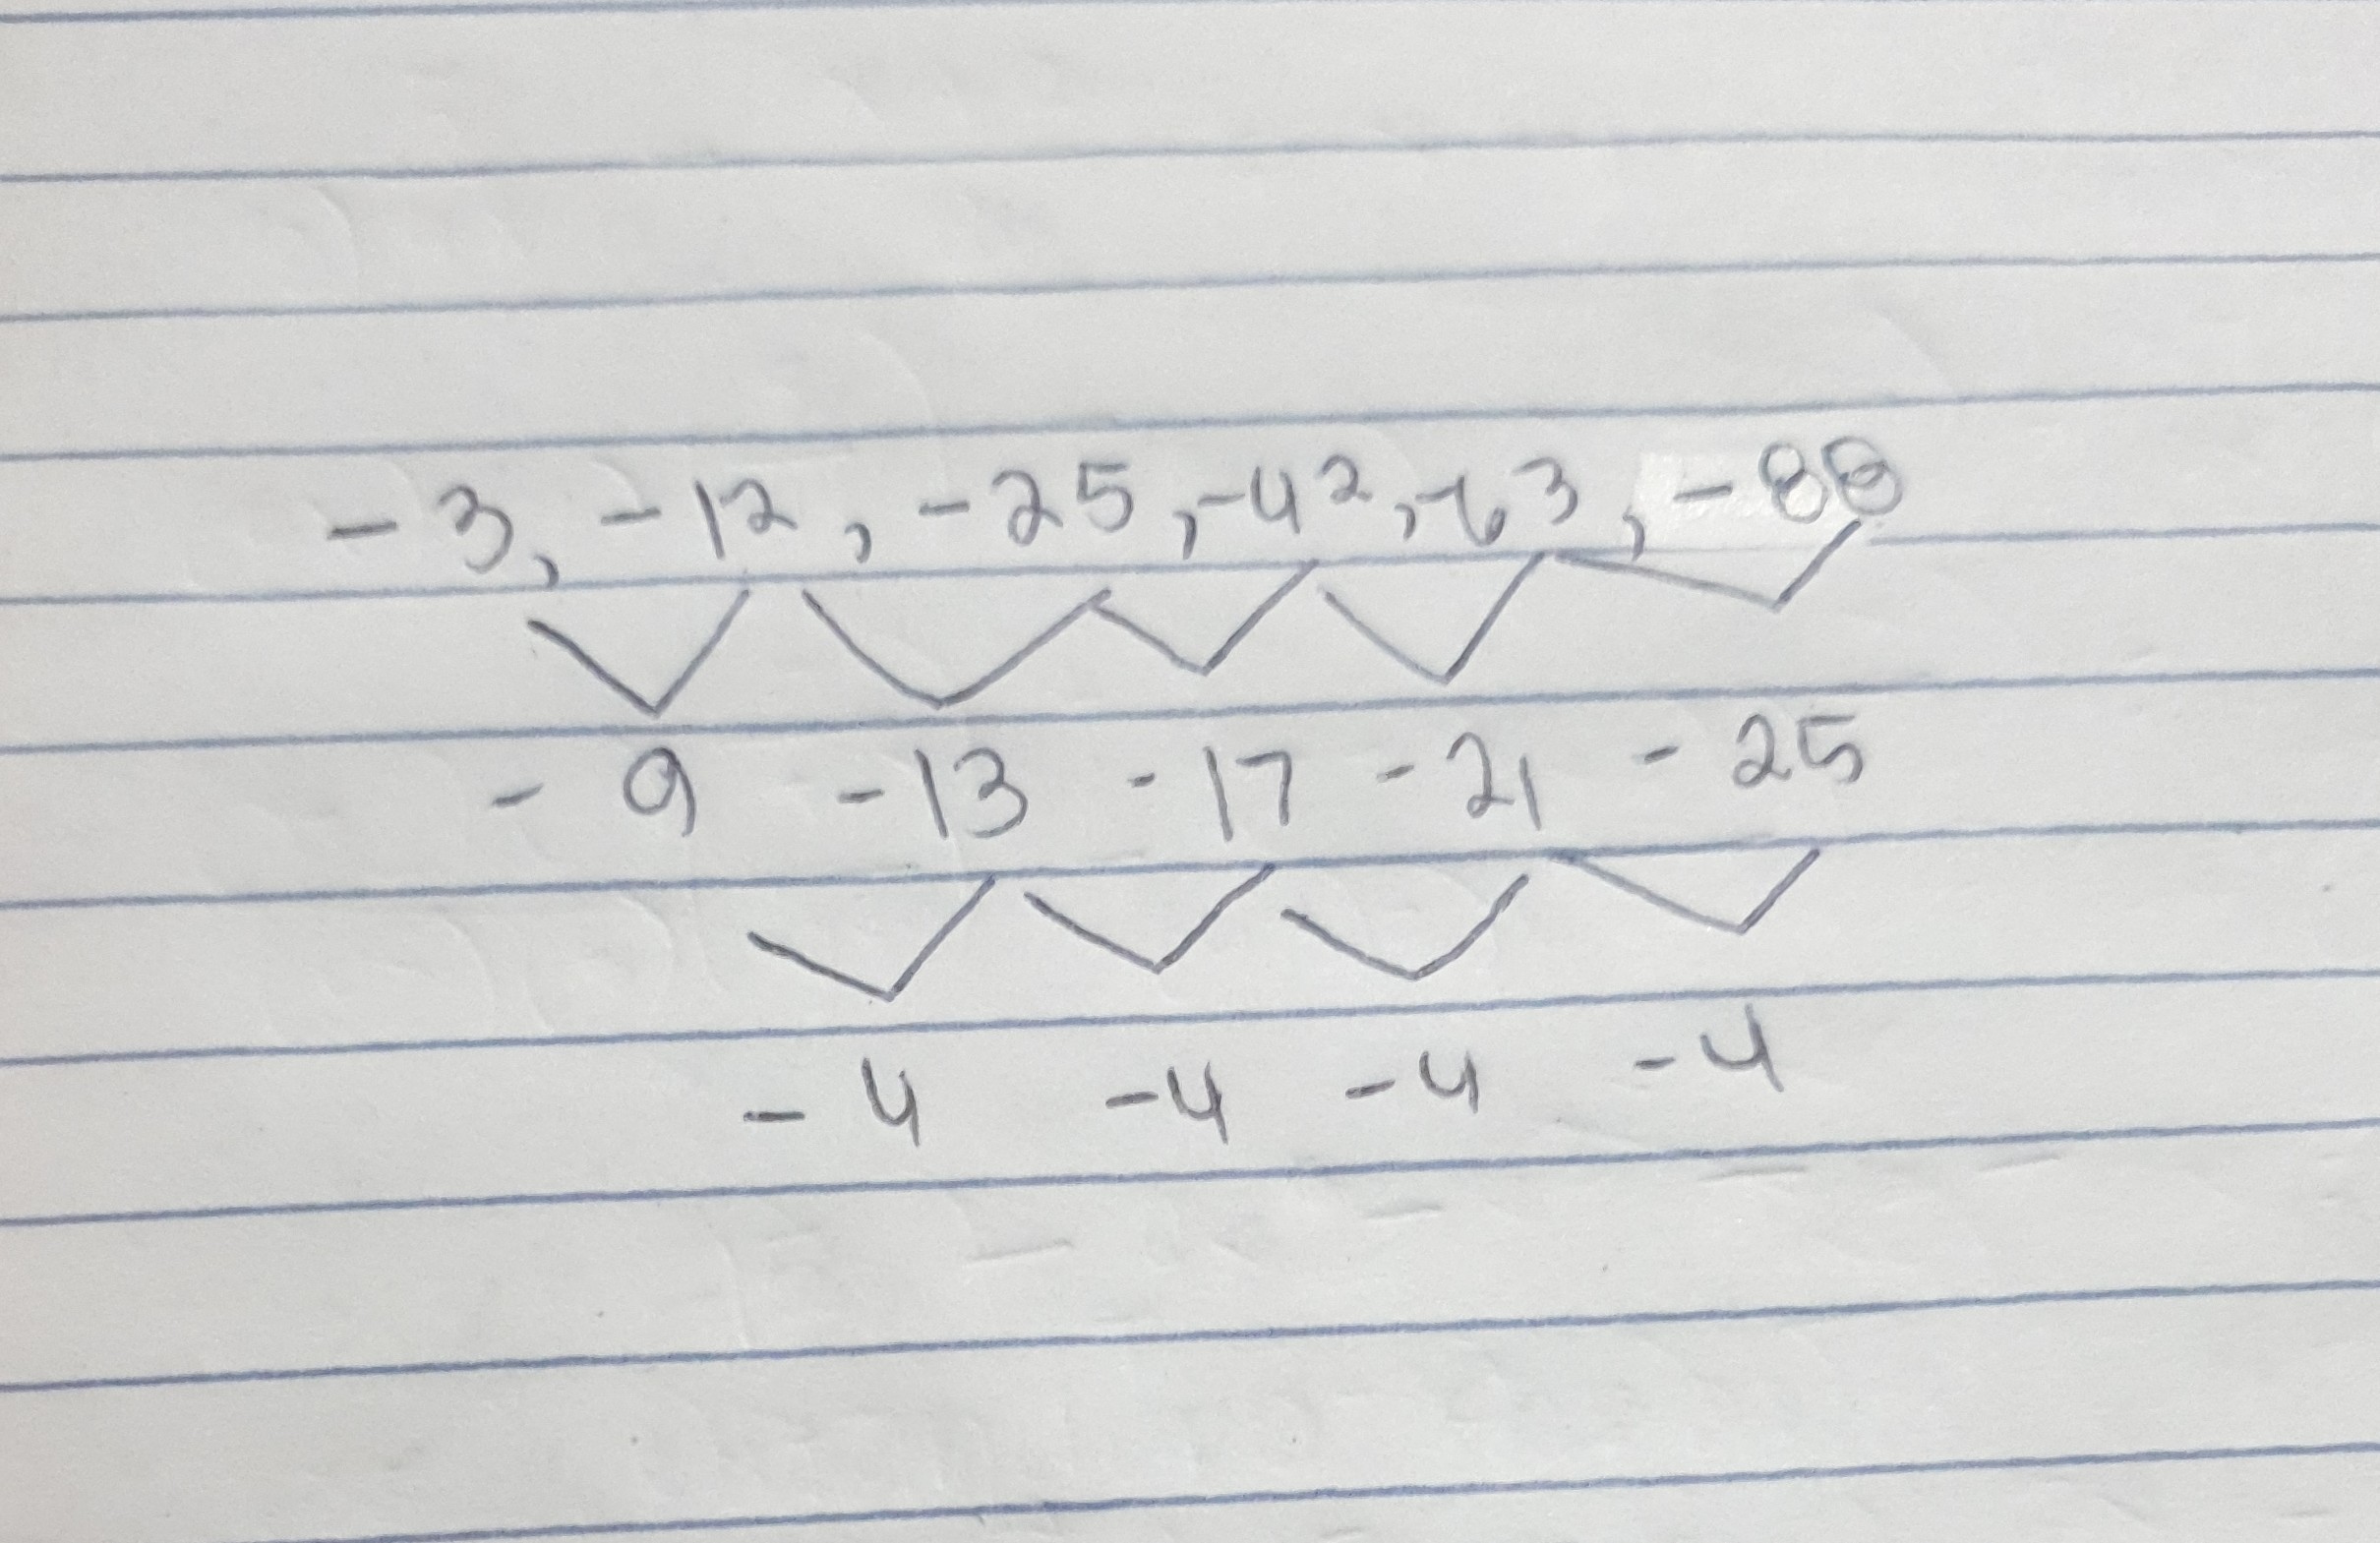 - 3, - 12, - 25, - 42, - 63, - 88
- 9 - 13 - 17 - 21 - 25
- 4 - 4 - 4 - 4